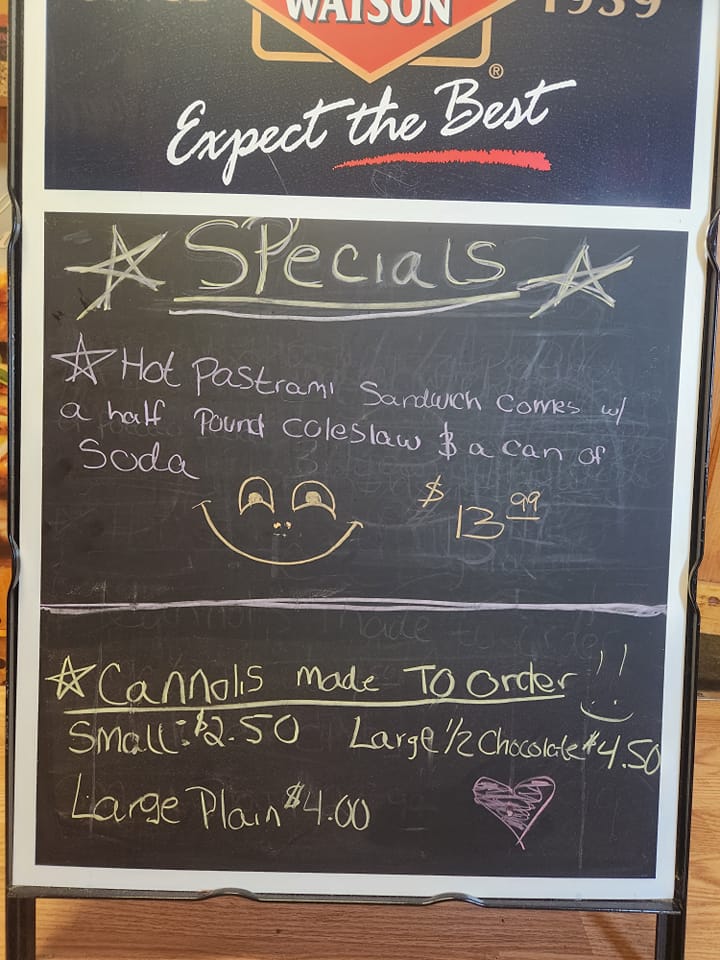 WATSON
1939
®
Expect the Best
Specials
Hot Pastrami Sandwich comes w/
a half Pound coleslaw & a can of
Soda
$13.99
Cannolis made To Order!!
Small: $2.50 Large 1/2 Chocolate $4.50
Large Plain $4.00